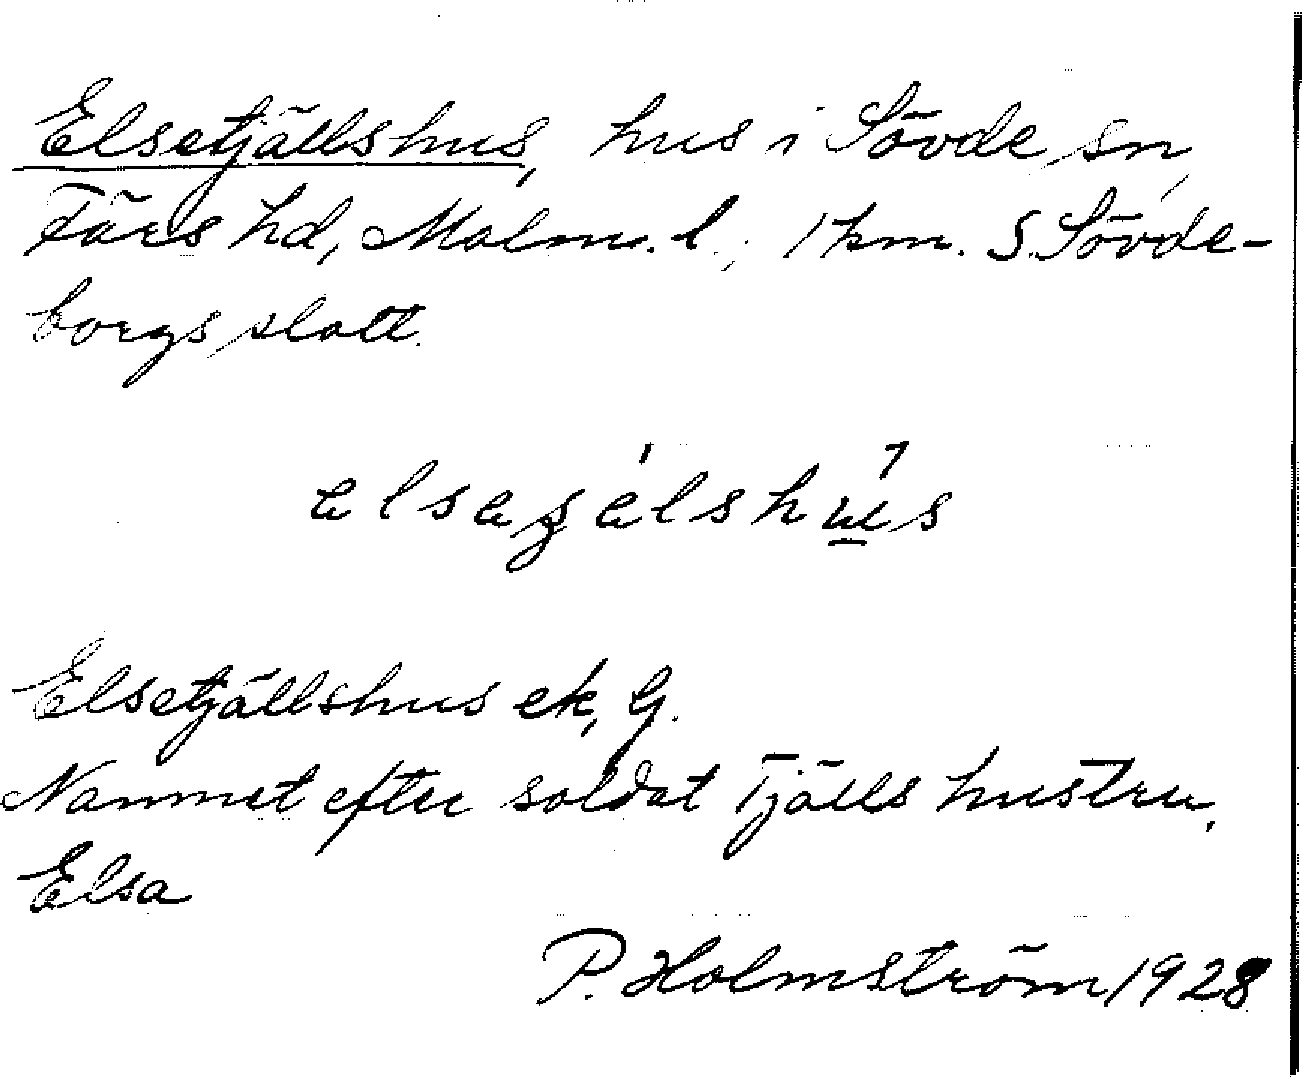 Elsetjällshus, hus i Sövde sn,
Färs hd, Malmö. l.; 1 km. S. Sövde-
borgs slott.
elseʒélshu̲s
Elsetjällshus ek, G.
Namnet efter soldat Tjälls hustru,
Elsa
P. Holmström 1928